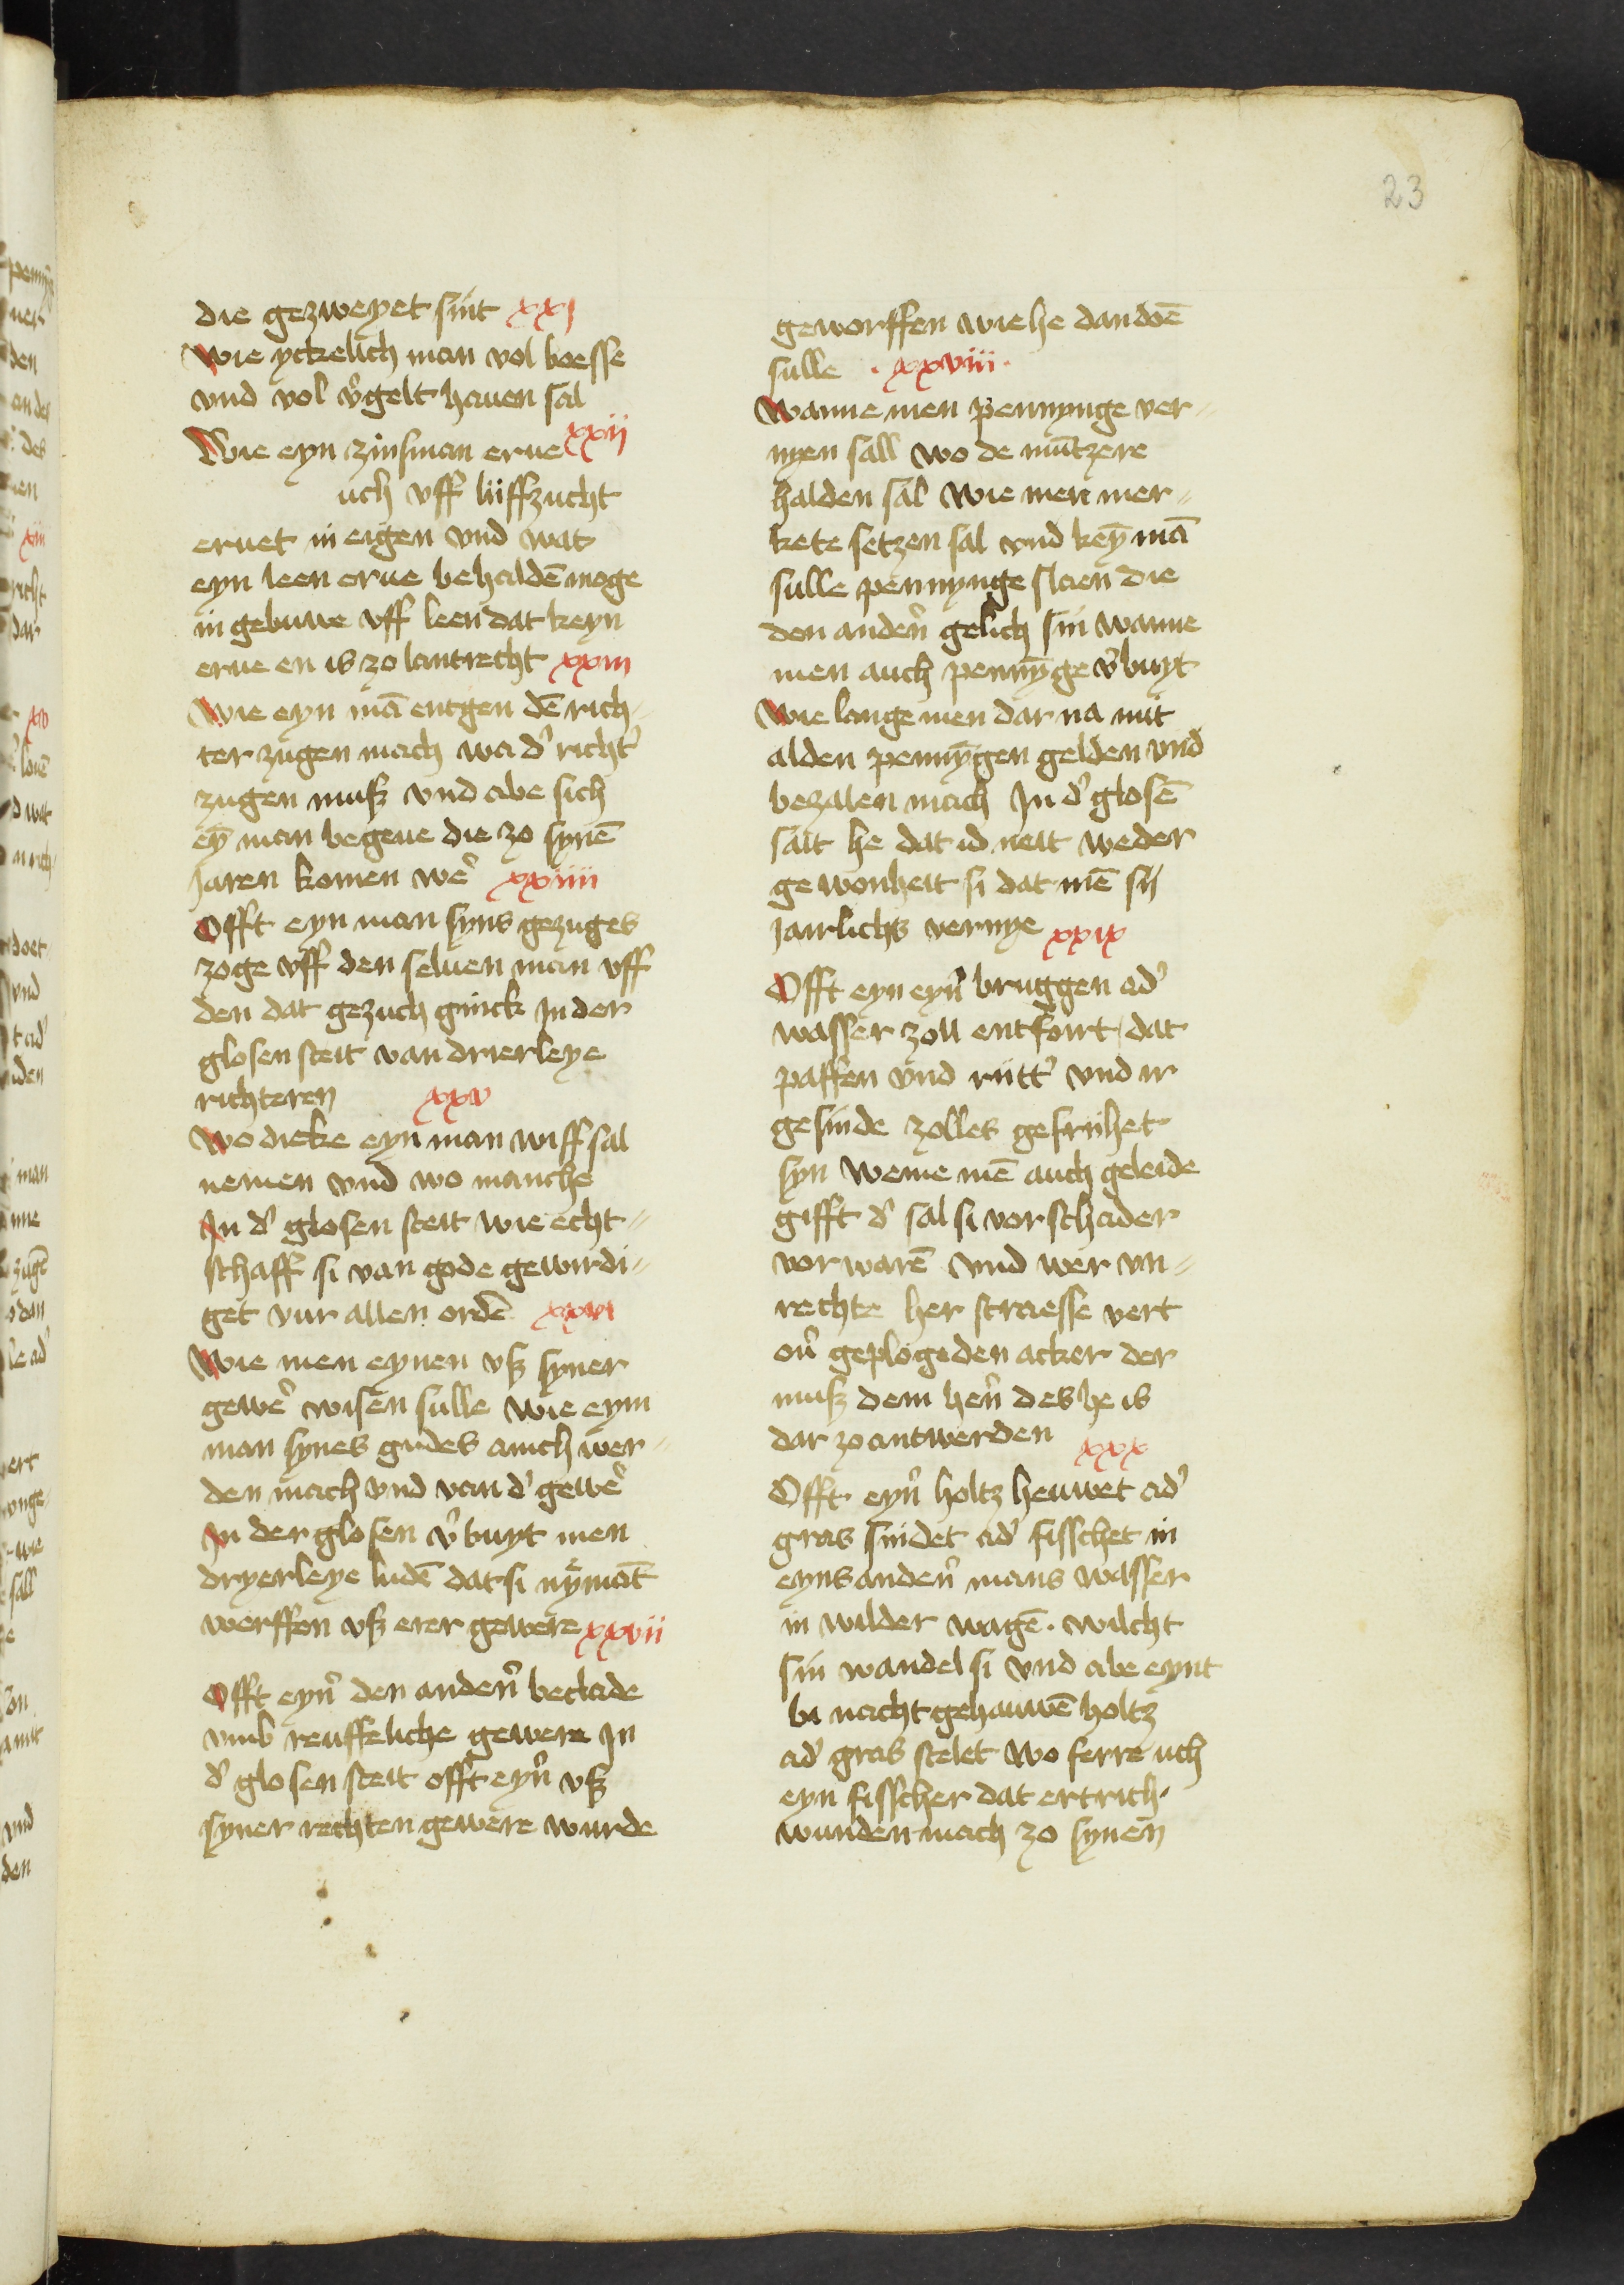 23
die gezweyet sint xxj
Wie yckelich man vol boesse
vnd vol v̉gelt hauen sal
Wie eyn zinsman erue xxij
uch vff liiffzucht
eruet in eigen vnd wat
eyn leen erue behaldē moge
in gebuwe vff leen dat keyn
erue en is zo lantrecht xxiii
Wie eyn mā entgen dē rich-
ter zugen mach wa d' richt'
zugen muß vnd abe sich
eȳ man begeue die zo synē
Jaren komen we' xxiiii
Offt eyn man syns gezuges
zoge vff den seluen man vff
den dat gezuch ginck In der
glosen steit van drierleye
richteren xxv
Wo dicke eyn man wiff sal
nemen vnd wo manche
In d' glosen steit wie echt-
schaff si van gode gewirdi-
get vur allen ordē xxvi
Wie men eynen vß syner
gewe' wisen sulle wie eym
man synes gudes auch wer-
den mach vnd van d' gewe'
In der glosen v' buyt men
dryerleye ludē dat si nȳmāt
werffen vß erer gewere xxvii
Offt eyn' den anden' beclade
vmb reuffeliche gewere In
d' glosen steit offt eyn' vß
syner rechten gewere wurde
geworffen wie he dan doē
sulle . xxviii .
Wanne men pennynge ver-
nyen sall wo de mūtzere
halden sal wie men mer-
kete setzen sal vnd keȳ mā
sulle pennynge slaen die
den anden' gelich sin wanne
men auch pennȳge v'buyt
Wie lange men dar na mit
alden pennȳgen gelden vnd
bezalen mach In d' glosē
sait he dat id neit weder
gewonheit si dat mē sij
Jairlichs vernye xxix
Offt eyn eyn' bruggen ad'
wasser zoll entfoirt / dat
paffen vnd ritt' vnd ir
gesinde zolles gefrihet
syn Weme mē auch geleide
gifft d' sal si vor schader
vorwarē vnd wer vn-
rechte her straesse vert
ou' geplogeden acker der
muß dem hen' des he is
dar zo antwerden xxx
Offt eyn' holtz heuwet ad'
gras snidet ad' fisschet in
eyns anden' mans wasser
in wilder wagē . wilcht
sin wandel si vnd abe eynt
bi nacht gehauwē holtz
ad' gras stelet wo ferre uch
eyn fisscher dat ertrich
wunden mach zo synen